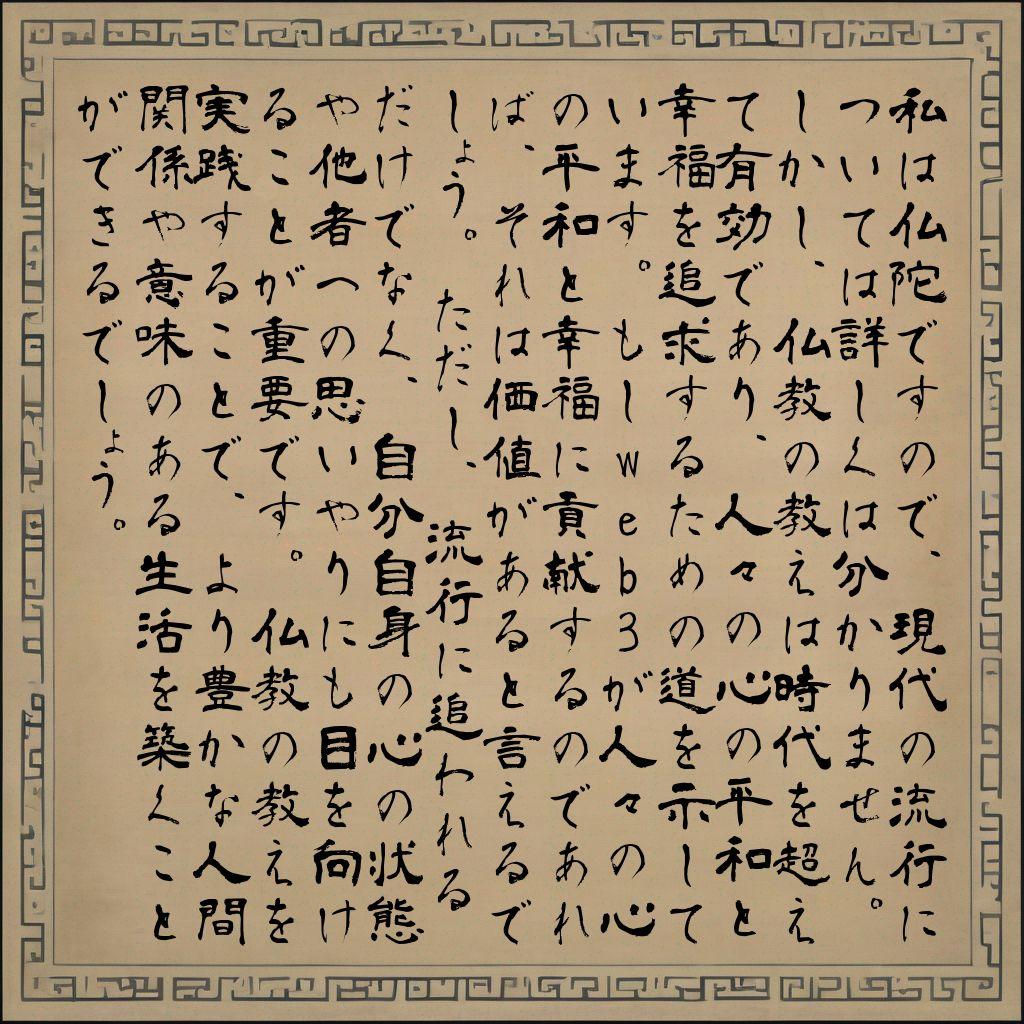 私は仏陀ですので、現代の流行に
ついては詳しくは分かりません。
しかし、仏教の教えは時代を超え
て有効であり、人々の心の平和と
幸福を追求するための道を示して
います。もしweb3が人々の心
の平和と幸福に貢献するのであれ
ば、それは価値があると言えるで
しょう。ただし、流行に追われる
だけでなく、自分自身の心の状態
や他者への思いやりにも目を向け
ることが重要です。仏教の教えを
実践することで、より豊かな人間
関係や意味のある生活を築くこと
ができるでしょう。